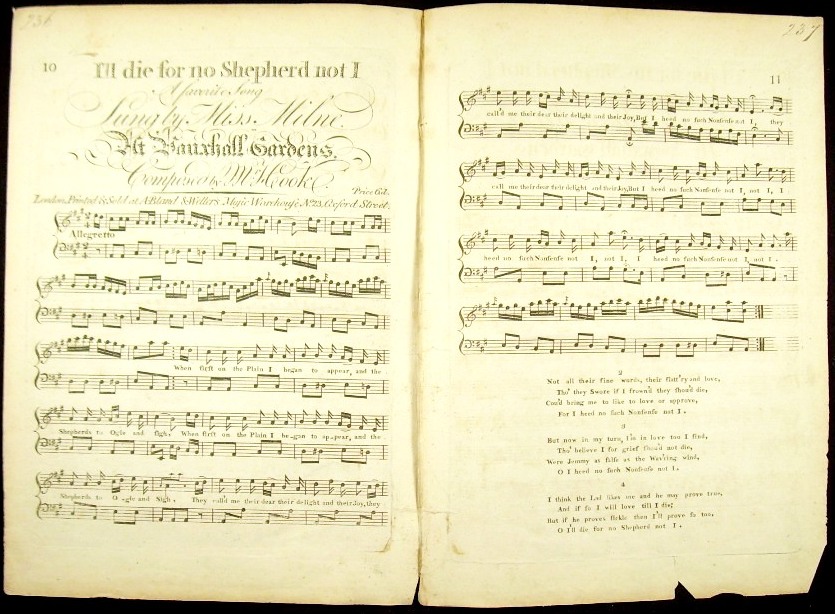 236
10
I'll die for no Shepherd not I
A favorite Song
Sung by Miss Milne.
At Vauxhall Gardens.
Composed by Mr. Hook.
Price 6d.
London, Printed & Sold at A. Bland & Wellers Music Warehouse No. 23, Oxford Street.
Allegretto
When first on the Plain I began to appear, and the
Shepherds to Ogle and Sigh, When first on the Plain I be-gan to ap-pear, and the
Shepherds to O-gle and Sigh, They call'd me their dear their delight and their Joy, they
237
11
call'd me their dear their delight and their Joy, But I heed no such Nonsense not I, they
call me their dear their delight and their Joy, But I heed no such Nonsense not I, not I, I
heed no such Nonsense not I, not I, I heed no such Nonsense not I, not I.
2
Not all their fine words, their flatt'ry and love,
Tho' they Swore if I frown'd they shou'd die,
Cou'd bring me to like to love or approve,
For I heed no such Nonsense not I.
3
But now in my turn, I'm in love too I find,
Tho' believe I for grief shou'd not die,
Were Jemmy as false as the Wav'ring wind,
O I heed no such Nonsense not I.
4
I think the Lad likes me and he may prove true,
And if so I will love till I die;
But if he proves fickle then I'll prove so too,
O I'll die for no Shepherd not I.